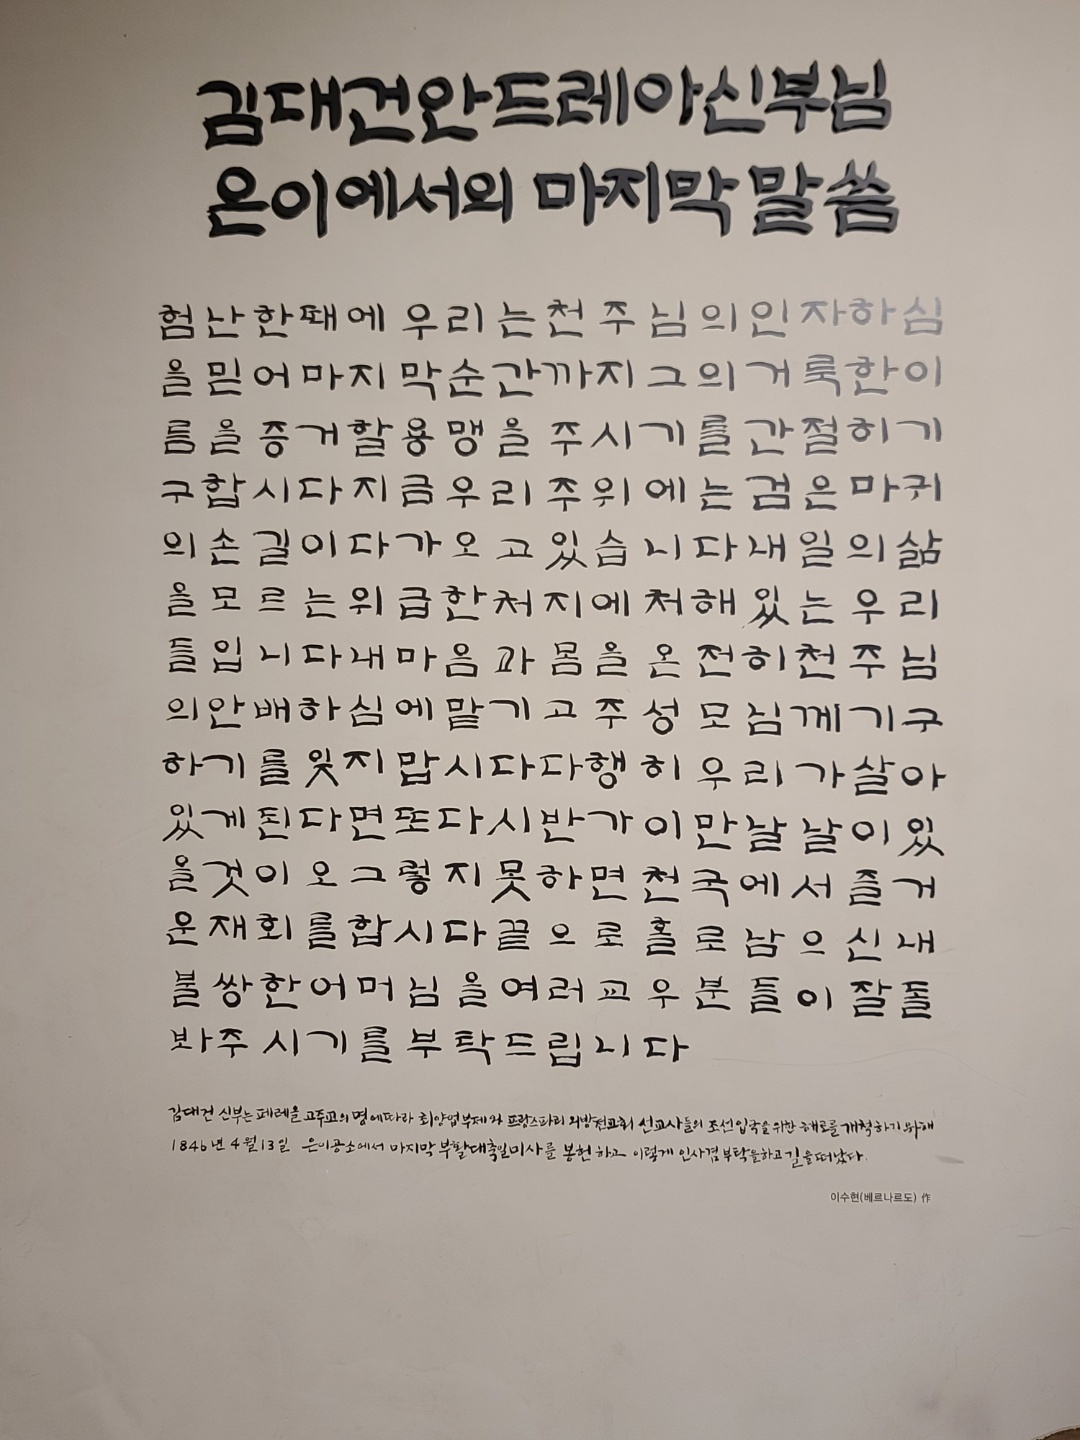 김대건안드레아신부님
은이에서의 마지막 말씀
험난한때에우리는천주님의인자하심
을믿어마지막순간까지그의거룩한이
름을증거할용맹을주시기를간절히기
구합시다지금우리주위에는검은마귀
의손길이다가오고있습니다내일의삶
을모르는위급한처지에처해있는우리
들입니다내마음과몸을온전히천주님
의안배하심에맡기고주성모님께기구
하기를잊지맙시다다행히우리가살아
있게된다면또다시반가이만날날이있
을것이오그렇지못하면천국에서즐거
운재회를합시다끝으로홀로남으신내
불쌍한어머님을여러교우분들이잘돌
봐주시기를부탁드립니다
김대건 신부는 페레올 고주교의 명에따라 최양업부제와 프랑스파리 외방전교회 선교사들의 조선입국을 위한 해로를 개척하기 위해
1846년 4월13일 은이공소에서 마지막 부활대축일미사를 봉헌하고 이렇게 인사겸 부탁을하고 길을떠났다.
이수현(베르나르도) 作